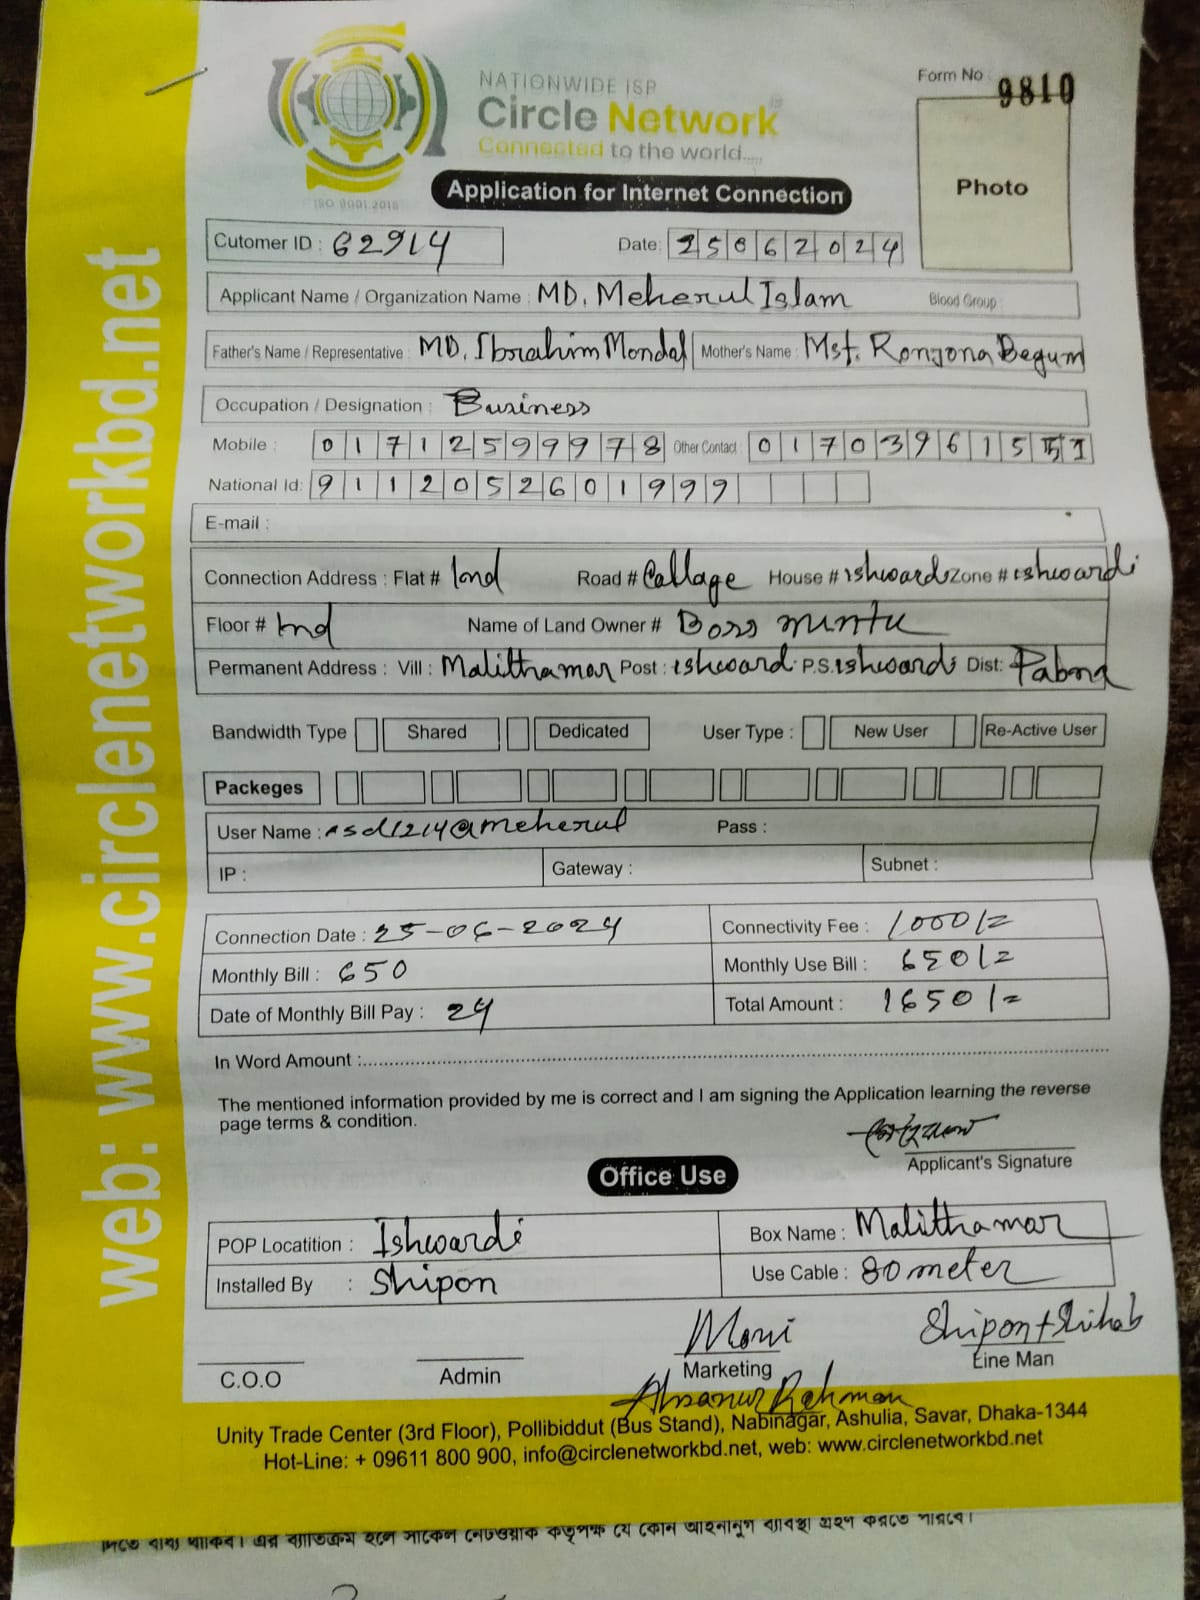 NATIONWIDE ISP
Circle Network
Connected to the world.....
ISO 9001:2015
Form No : 9810
Photo
Application for Internet Connection
Cutomer ID : 62914
Date: 25062024
Applicant Name / Organization Name : MD. Meherul Islam Blood Group :
Father's Name / Representative : MD. Ibrahim Mondal Mother's Name : Mst. Ronjona Begum
Occupation / Designation : Business
Mobile : 01712599978 Other Contact : 017039615
National Id: 9112052601999
E-mail :
Connection Address : Flat # Road # Callage House # ishwardi Zone # ishwardi
Floor # Name of Land Owner # Boss mintu
Permanent Address : Vill : Malithamar Post : ishwardi P.S. Ishwardi Dist: Pabna
Bandwidth Type Shared Dedicated User Type : New User Re-Active User
Packeges
User Name : asd1214@meherul Pass :
IP : Gateway : Subnet :
Connection Date : 25-06-2024 Connectivity Fee : 1000/=
Monthly Bill : 650 Monthly Use Bill : 650/=
Date of Monthly Bill Pay : 24 Total Amount : 1650/=
In Word Amount :
The mentioned information provided by me is correct and I am signing the Application learning the reverse
page terms & condition.
Applicant's Signature
Office Use
POP Locatition : Ishwardi Box Name : Malithamar
Installed By : Shipon Use Cable : 80 meter
Moni Shipon + Shihab
C.O.O Admin Marketing Line Man
Ahsanur Rahman
Unity Trade Center (3rd Floor), Pollibiddut (Bus Stand), Nabinagar, Ashulia, Savar, Dhaka-1344
Hot-Line: + 09611 800 900, info@circlenetworkbd.net, web: www.circlenetworkbd.net
web: www.circlenetworkbd.net
দিতে বাধ্য থাকিব। এর ব্যতিক্রম হলে সার্কেল নেটওয়ার্ক কতৃপক্ষ যে কোন আইনানুগ ব্যাবস্থা গ্রহণ করতে পারবে।